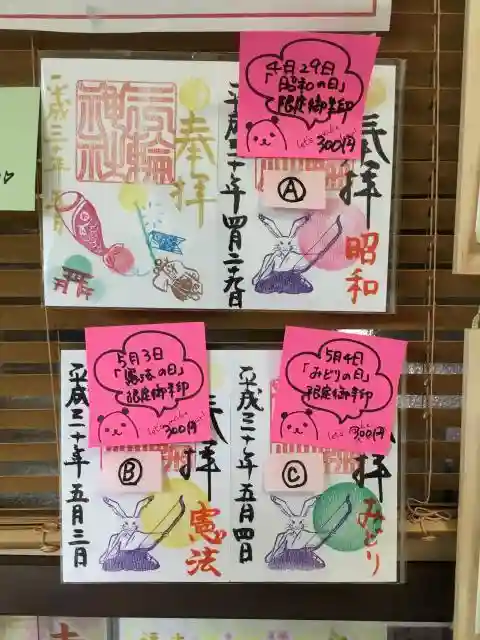 奉拝
平成三十年
三輪神社
4月29日
「昭和の日」
限定御朱印
300円
Ⓐ
拝
平成三十年四月二十九日
昭和
5月3日
「憲法の日」
限定御朱印
300円
Ⓑ
拝
平成三十年五月三日
憲法
5月4日
「みどりの日」
限定御朱印
300円
Ⓒ
拝
平成三十年五月四日
みどり